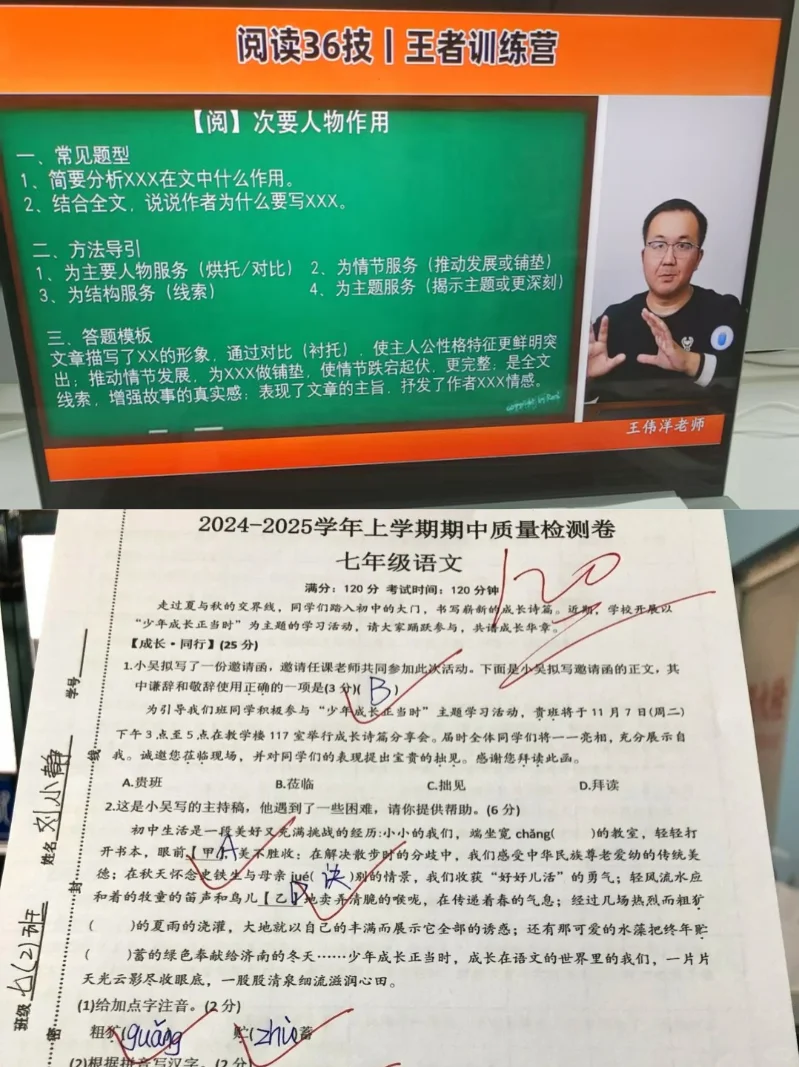 阅读36技丨王者训练营
【阅】次要人物作用
一、常见题型
1、简要分析XXX在文中什么作用。
2、结合全文，说说作者为什么要写XXX。
二、方法导引
1、为主要人物服务（烘托/对比） 2、为情节服务（推动发展或铺垫）
3、为结构服务（线索） 4、为主题服务（揭示主题或更深刻）
三、答题模板
文章描写了XX的形象，通过对比（衬托），使主人公性格特征更鲜明突
出；推动情节发展，为XXX做铺垫，使情节跌宕起伏，更完整；是全文
线索，增强故事的真实感；表现了文章的主旨，抒发了作者XXX情感。
王伟洋老师
2024-2025学年上学期期中质量检测卷
七年级语文
120
满分：120 分 考试时间：120 分钟
走过夏与秋的交界线，同学们踏入初中的大门，书写崭新的成长诗篇。近期，学校开展以
“少年成长正当时”为主题的学习活动，请大家踊跃参与，共谱成长华章。
【成长·同行】(25 分)
1.小吴拟写了一份邀请函，邀请任课老师共同参加此次活动。下面是小吴拟写邀请函的正文，其
中谦辞和敬辞使用正确的一项是(3 分)( B )
为引导我们班同学积极参与“少年成长正当时”主题学习活动，贵班将于 11 月 7 日(周二)
下午 3 点至 5 点在教学楼 117 室举行成长诗篇分享会。届时全体同学们将一一亮相，充分展示自
我。诚邀您莅临现场，并对同学们的表现提出宝贵的拙见。感谢您拜读此函。
A.贵班 B.莅临 C.拙见 D.拜读
2.这是小吴写的主持稿，他遇到了一些困难，请你提供帮助。(6 分)
初中生活是一段美好又充满挑战的经历:小小的我们，端坐宽 chǎng( )的教室，轻轻打
开书本，眼前【甲】A美不胜收；在解决散步时的分歧中，我们感受中华民族尊老爱幼的传统美
德；在秋天怀念史铁生与母亲 jué( 诀 )别的情景，我们收获“好好儿活”的勇气；轻风流水应
和着的牧童的笛声和鸟儿【乙】D地卖弄清脆的喉咙，在传递着春的气息；经过几场热烈而粗犷
( )的夏雨的浇灌，大地就以自己的丰满而展示它全部的诱惑；还有那可爱的水藻把终年贮
( )蓄的绿色奉献给济南的冬天……少年成长正当时，成长在语文的世界里的我们，一片片
天光云影尽收眼底，一股股清泉细流滋润心田。
(1)给加点字注音。(2 分)
粗犷(guǎng 贮(zhù蓄
(2)根据拼音写汉字。(2 分)
学号
姓名 刘小静
班级 七(2)班
线
封
密